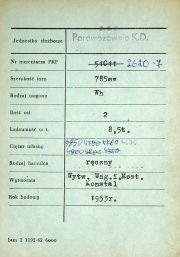 Jednostka służbowa
Parowozownia K.D.
Nr inwentarza PKP 51011 2620-7
Szerokość toru 785mm
Rodzaj wagonu Wh
Ilość osi 2
Ładowność w t. 8,5t.
Ciężar własny
Rodzaj hamulca ręczny
Wytwórnia Wytw. Wag.i.Most. Konstal
Rok budowy 1953r.